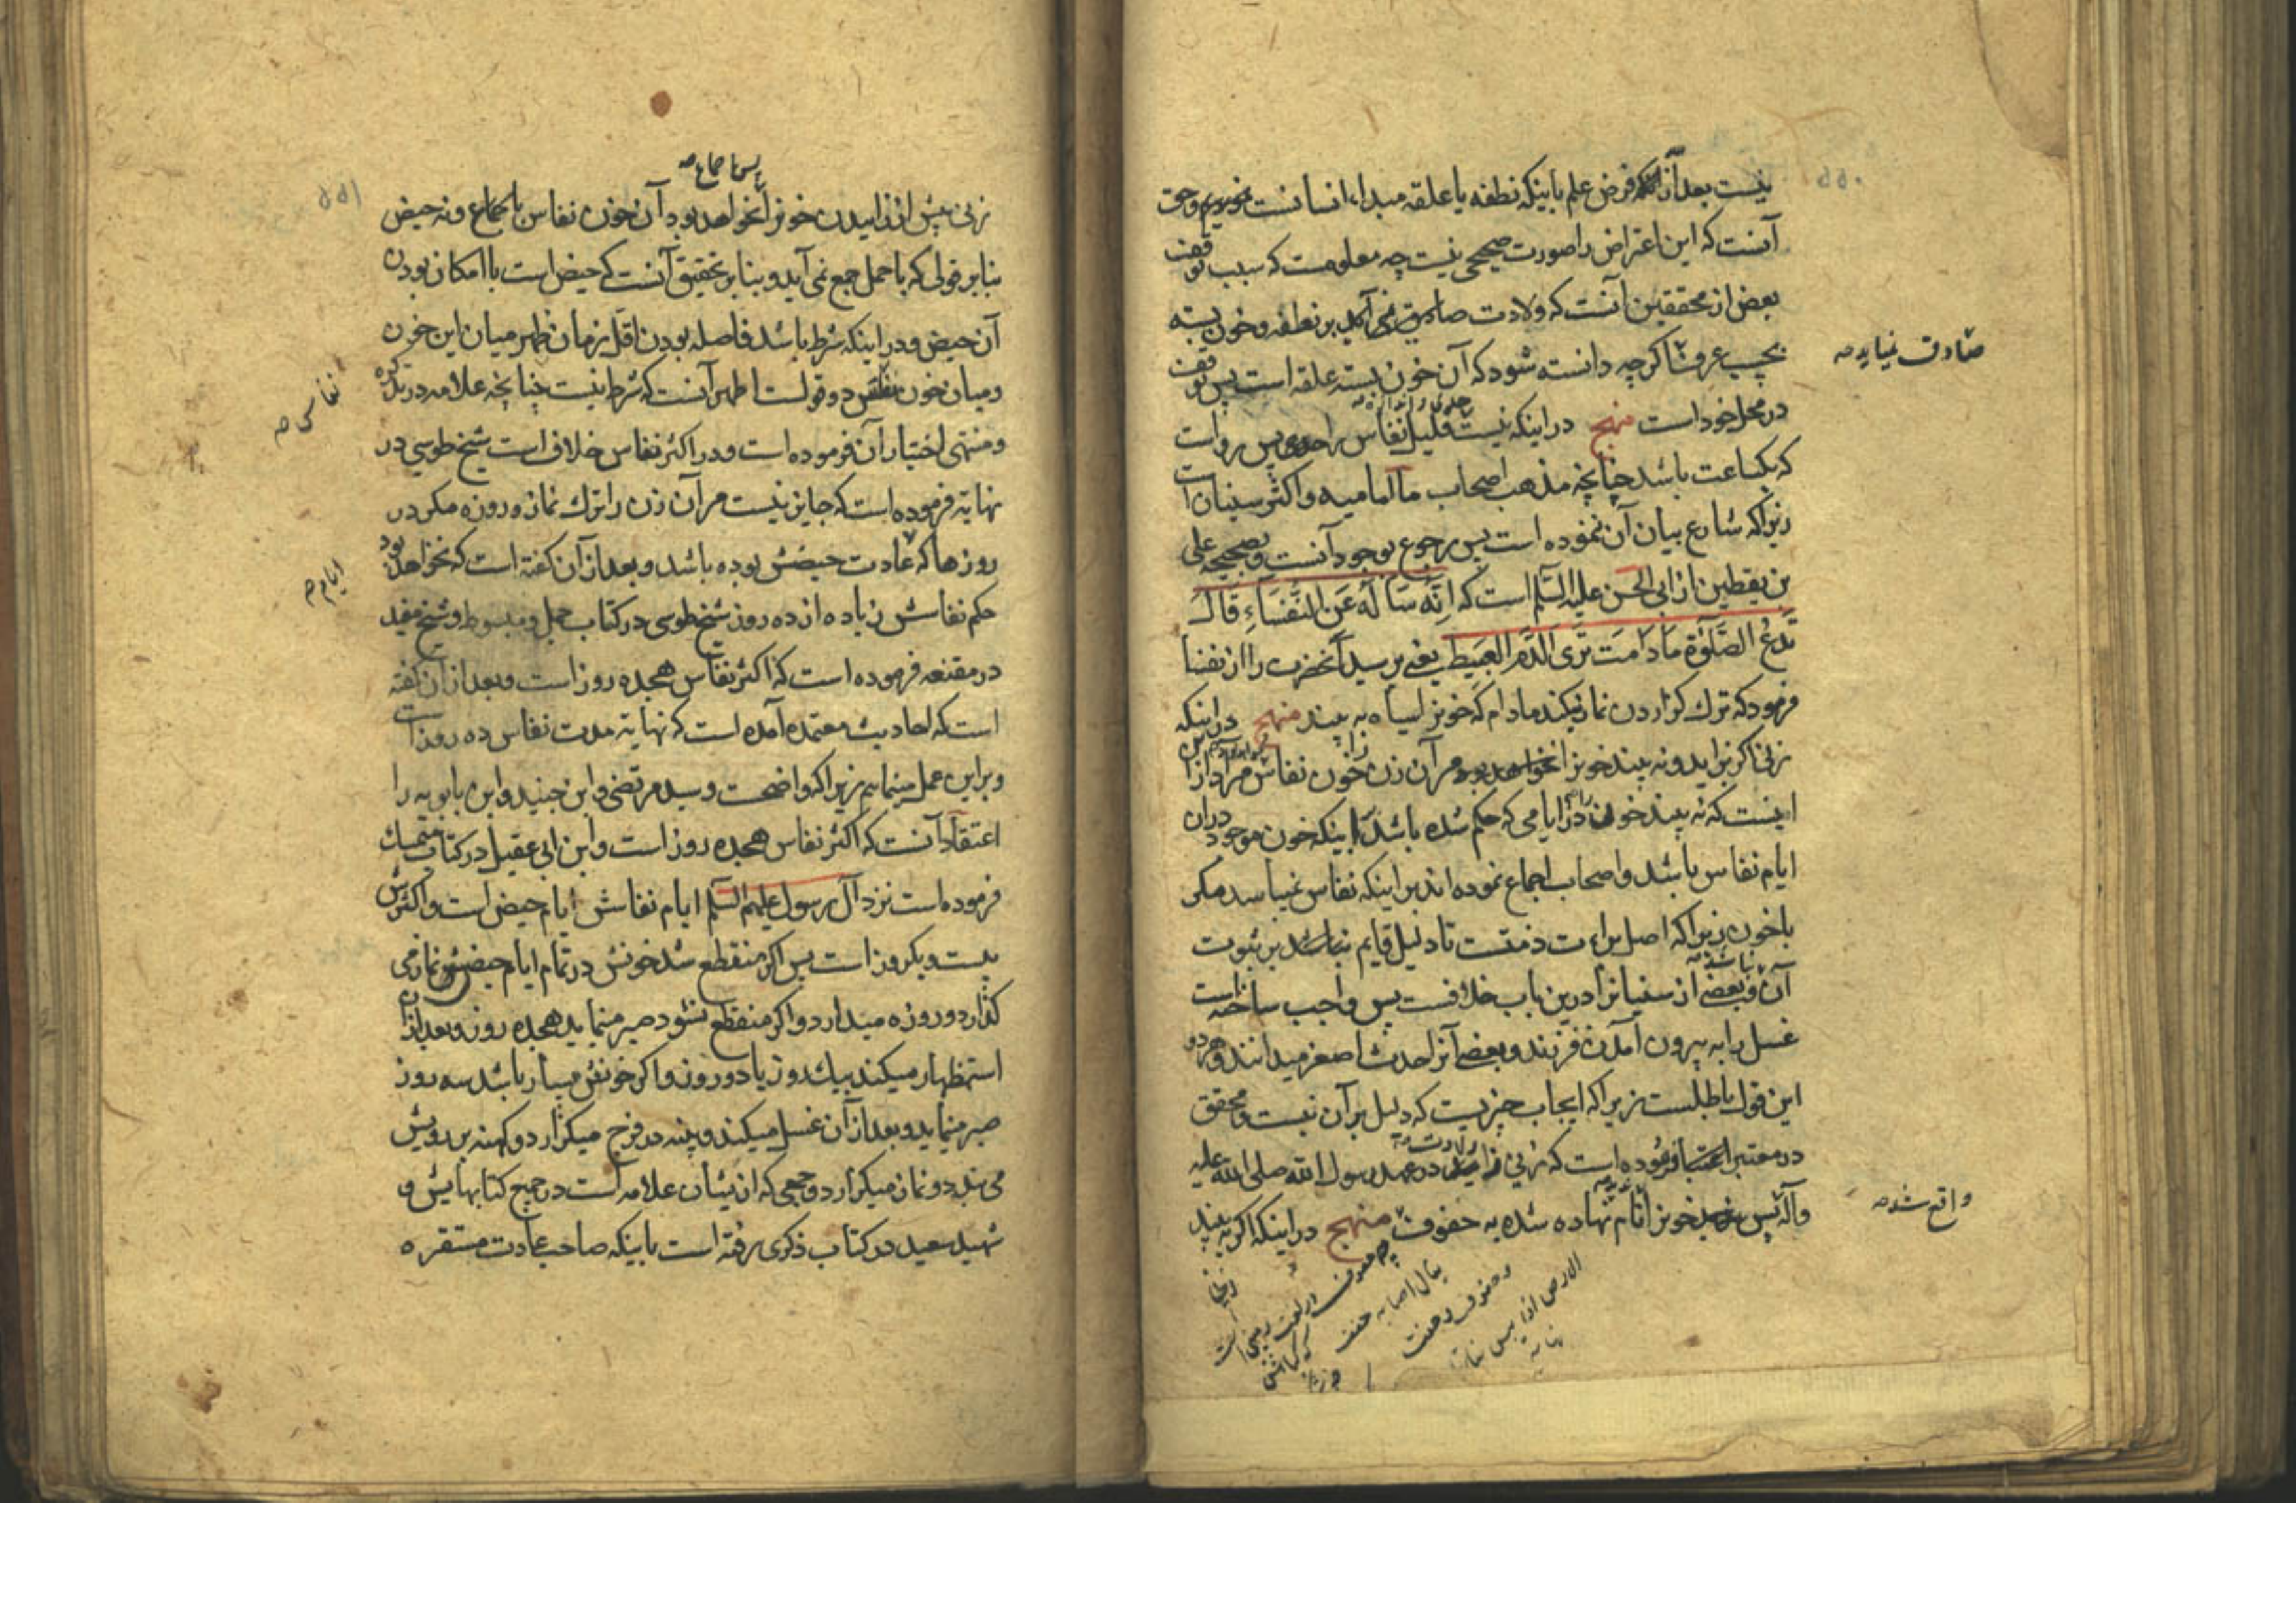 نیست بعد از آنکه فرض علم باینکه نطفه یا علقه مبداء انسانست وحق
آنست که این اعتراض را صورت صحیحی نیست چه معلومست که سبب توقف
بعض از محققین آنست که ولادت صادق نمی آید بر نطفه و خون بسته
بحسب عرف اگرچه دانسته شود که آن خون بسته علقه است پس توقف
صادق نمیاید صح
در محل خود است منهج در اینکه نیست قلیل نفاس را حدی پس رواست
که یکساعت باشد چنانچه مذهب اصحاب ما امامیه و اکثر سنیان است
زیرا که شارع بیان آن ننموده است پس رجوع بوجود آنست و بصحیحه علی
بن یقطین از ابی الحسن علیه السلم است که اِنَّه سَاَلَهُ عَن النُّفَسَاءِ قَالَ
تَدَعُ الصَّلوٰةَ مَادَامَت تَرَی الدَّمَ العَبیطَ یعنی پرسید آنحضرت را از نفسا
فرمود که ترک گزاردن نماز یکند مادام که خونرا سیاه به بیند منهج در اینکه
زنی اگر بزاید و نه بیند خونرا نخواهد بود مر آن زن را خون نفاس مراد از
اینست که نه بیند خون را در ایامی که حکم شده باشد باینکه خون موجود در آن
ایام نفاس باشد و اصحاب اجماع نموده اند بر اینکه نفاس نمیباشد مکر
با خون زیرا که اصل براءت ذمتست تا دلیل قایم نباشد بر ثبوت
آن و بعضی از سنیانرا درین باب خلافست پس واجب ساخته است
غسل را به بیرون آمدن فرزند و بعضی آنرا حدث اصغر میدانند و هر دو
این قول باطلست زیرا که ایجاب چیزیست که دلیل بر آن نیست و محقق
در معتبر فرموده است که زنی در عهد رسول الله صلی الله علیه
واقع شد صح
و آله پس خونرا نام نهاده شده به جفوف منهج در اینکه اگر به بیند
زنی پیش از زاییدن خونرا نخواهد بود آن خون نفاس باجماع و نه حیض
بنابر قولی که با حمل جمع نمی آید و بنابر تحقیق آنست که حیض است با امکان بودن
آن حیض و در اینکه شرط باشد فاصله بودن اقل زمان طهر میان این خون
و میان خون نفاس دو قولست اظهر آنست که شرط نیست چنانچه علامه در تذکره
نفاس صح
و منتهی اختیار آن فرموده است و در اکثر نفاس خلاف است شیخ طوسی در
نهایه فرموده است که جایز نیست مر آن زن را ترک نماز و روزه مکر در
روزها که عادت حیضش بوده باشد و بعد از آن گفته است که نخواهد بود
ایام صح
حکم نفاسش زیاده از ده روز شیخ طوسی در کتاب جمل و مبسوط و شیخ مفید
در مقنعه فرموده است که اکثر نفاس هجده روز است و بعد از آن گفته
است که احادیث معتمده آمده است که نهایه مدت نفاس ده روز است
و بر این عمل مینمایم زیرا که واضحست و سید مرتضی و ابن جنید و ابن بابویه را
اعتقاد آنست که اکثر نفاس هجده روز است و ابن ابی عقیل در کتاب متمسک
فرموده است نزد آل رسول علیهم السلم ایام نفاسش ایام حیض است و اکثرش
بیست و یکروز است پس اگر منقطع شد خونش در تمام ایام حیضش نماز می
گذارد و روزه میدارد و اگر منقطع نشود صبر مینماید هجده روز و بعد از آن
استظهار میکند بیک روز یا دو روز و اگر خونش بسیار باشد سه روز
صبر مینماید و بعد از آن غسل میکند و پنبه در فرج میگزارد و کهنه بر رویش
می بندد و نماز میگزارد و جمعی که از ایشان علامه است در جمیع کتابهایش و
شهید سعید در کتاب ذکری رفته است باینکه صاحب عادت مستقره